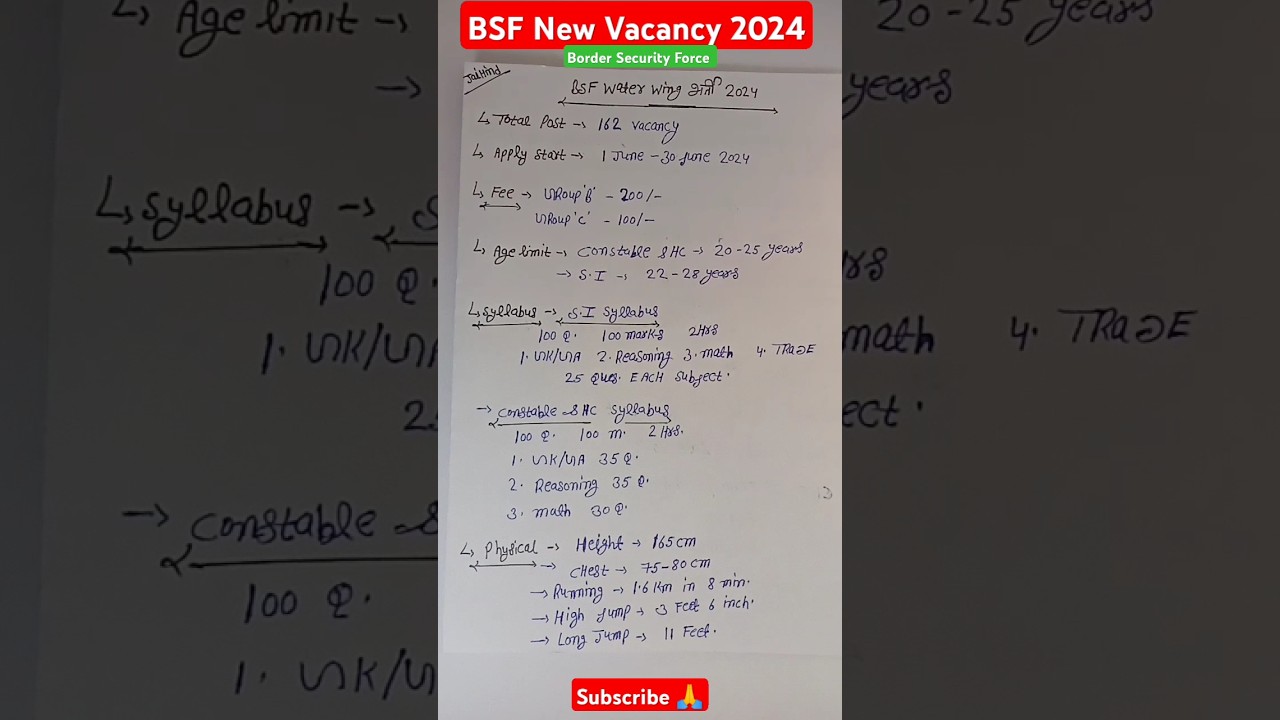 BSF New Vacancy 2024
Border Security Force
JaiHind
BSF Water Wing भर्ती 2024
↳ Total Post → 162 vacancy
↳ Apply Start → 1 June - 30 June 2024
↳ Fee → Group 'B' - 200/-
Group 'C' - 100/-
↳ Age limit → Constable & HC → 20-25 years
→ S.I → 22-28 years
↳ Syllabus → S.I Syllabus
100 Q. 100 marks 2 Hrs
1. GK/GA 2. Reasoning 3. math 4. TRADE
25 Ques. EACH Subject.
→ Constable & HC Syllabus
100 Q. 100 m. 2 Hrs.
1. GK/GA 35 Q.
2. Reasoning 35 Q.
3. math 30 Q.
↳ Physical → Height → 165 cm
→ CHest → 75-80 cm
→ Running → 1.6 Km in 8 min.
→ High Jump → 3 Feet 6 inch.
→ Long Jump → 11 Feet.
Subscribe 🙏
↳ Age limit →
20-25 years
→
years
↳ Syllabus → S
100 Q.
1. GK/GA
math 4. TRADE
ect.
→ Constable &
100 Q.
1. GK/GA